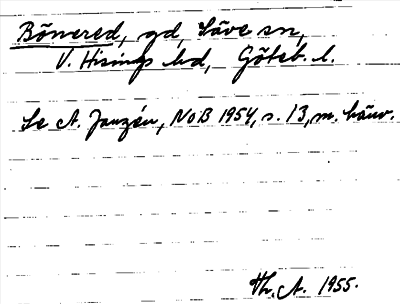 Bönered, gd, Säve sn,
V. Hisings hd, Göteb. l.
Se A. Janzén, NoB 1954, s. 13, m. hänv.
Th. A. 1955.